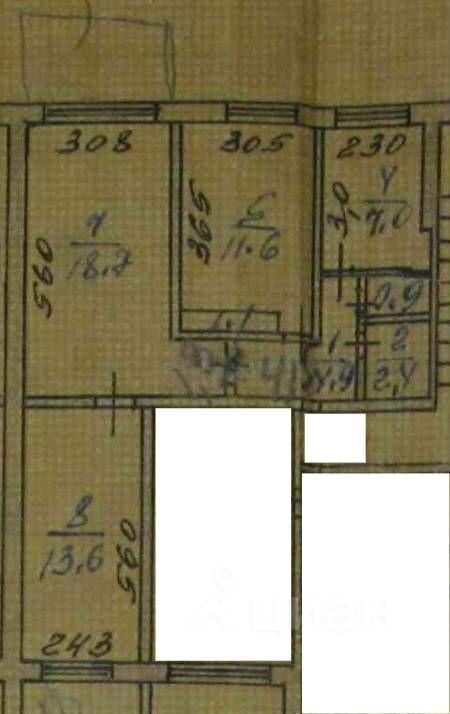 308
305
230
365
3,0
560
7
18.7
6
11.6
4
7.0
0.9
1.1
1
4.9
2
2,4
8
13.6
560
243
циан